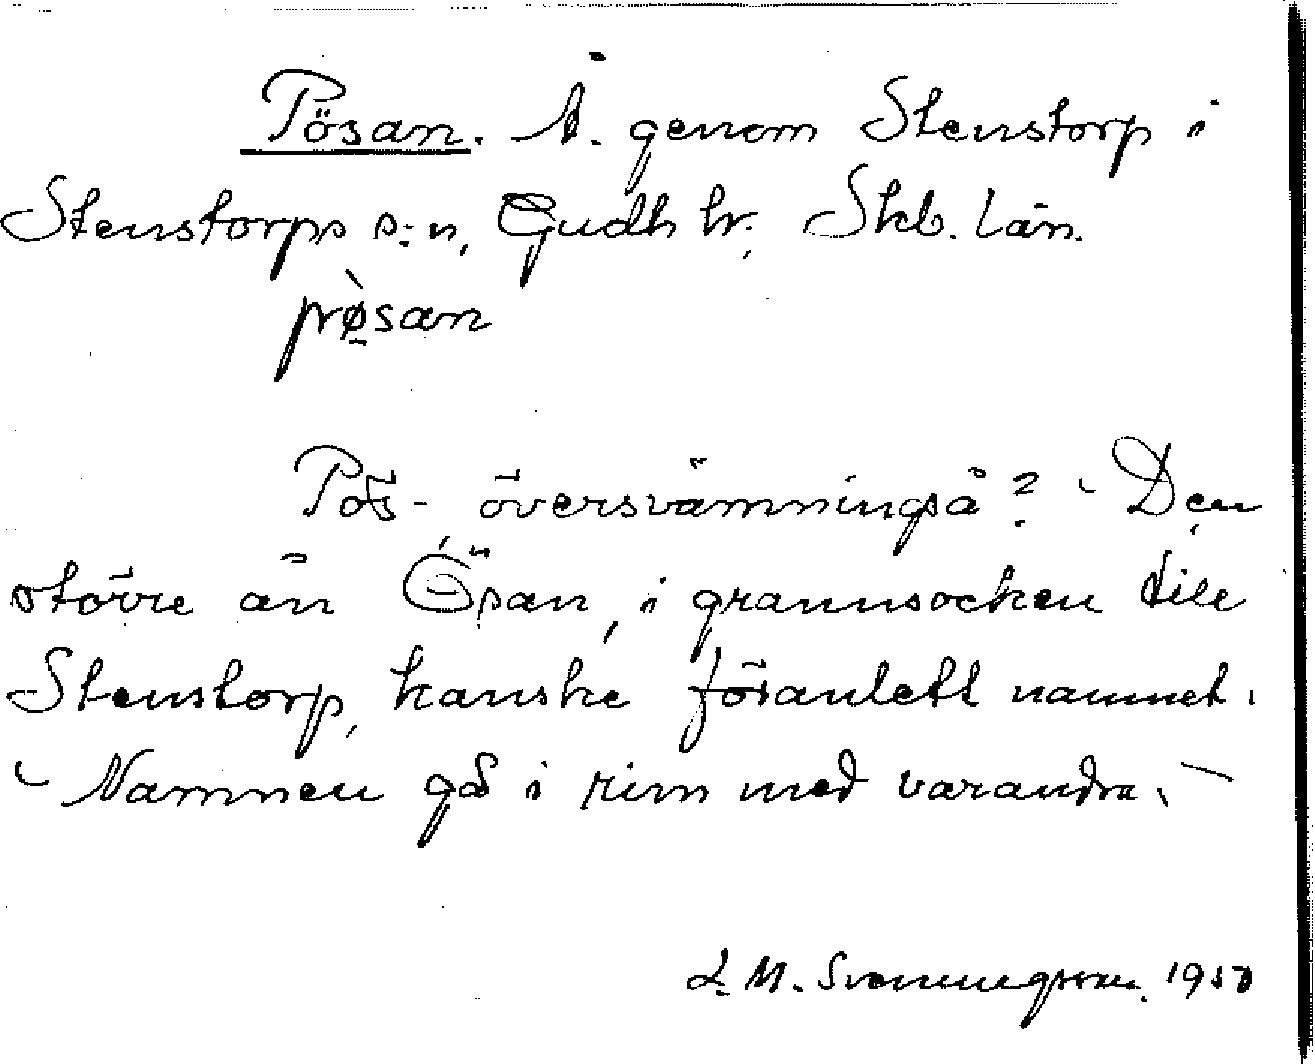 Pösan. Å. genom Stenstorp i
Stenstorps s:n, Gudh hr. Skb. län.
pø̀san
Pös-, översvämningså? - Den
större än Ösan, i grannsocken till
Stenstorp, kanske föranlett namnet.
- Namnen gå i rim med varandra. -
L. M. Svenungsson. 1950